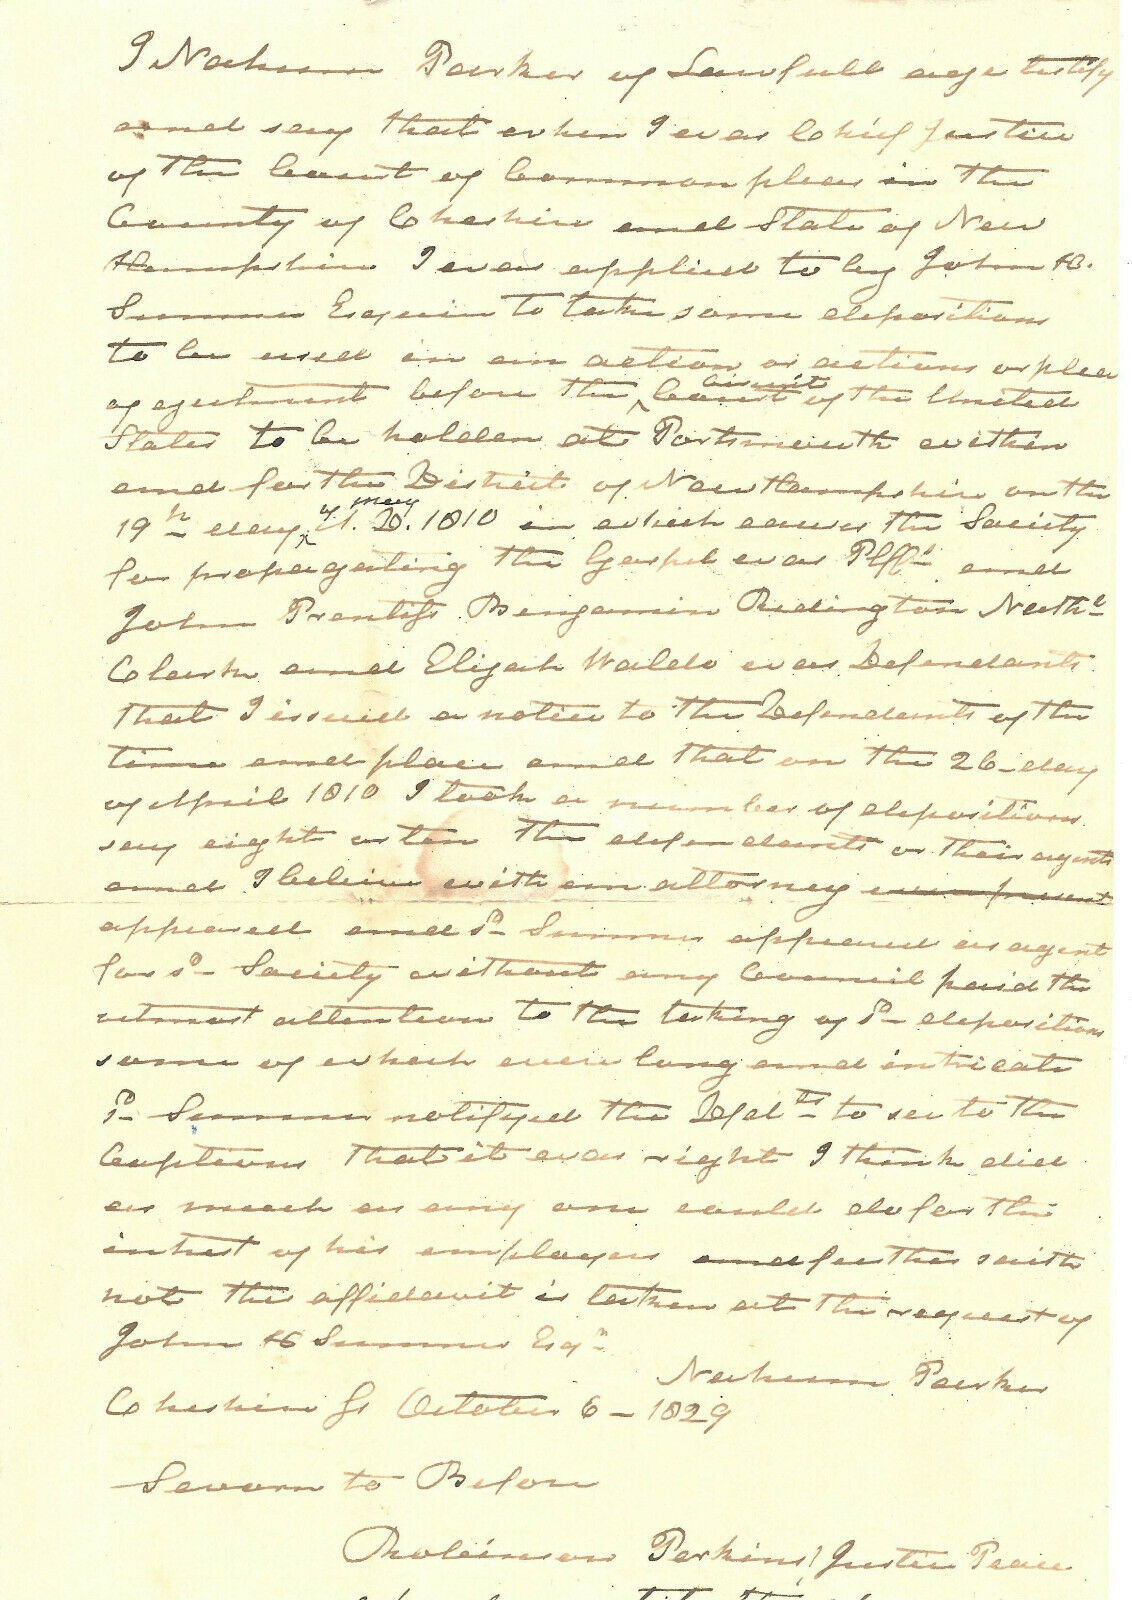 I Nahum Parker of Lawfull age testify
and say that when I was Chief Justice
of the Court of Common pleas in the
County of Cheshire and State of New
Hampshire I was applied to by John H.
Sumner Esquire to take some depositions
to be used in an action or actions or plea
of ejectment before the ^ circuit Court of the United
States to be holden at Portsmouth within
and for the District of New Hampshire on the
19th day ^ of may A. D. 1810 in which causes the Society
for propagating the Gospel was Plffs and
John Prentiss Benjamin Redington Nathl
Clark and Elijah Waldo was Defendants
that I issued a notice to the Defendants of the
time and place and that on the 26 day
of April 1810 I took a number of depositions
say eight or ten the defendants or their agents
and I believe with an attorney were present
appeared and sd Sumner appeared as agent
for sd Society without any Councill paid the
utmost attention to the taking of sd depositions
some of which were long and intricate
sd Sumner notifyed the Defdts to see to the
Captions that it was right I think did
as much as any one could do for the
intrest of his employers and further saith
not the affidavit is taken at the request of
John H Sumner Esqr
Nahum Parker
Cheshire Ss October 6 - 1829
Sworn to Before
Robinson Perkins, Justice Peace